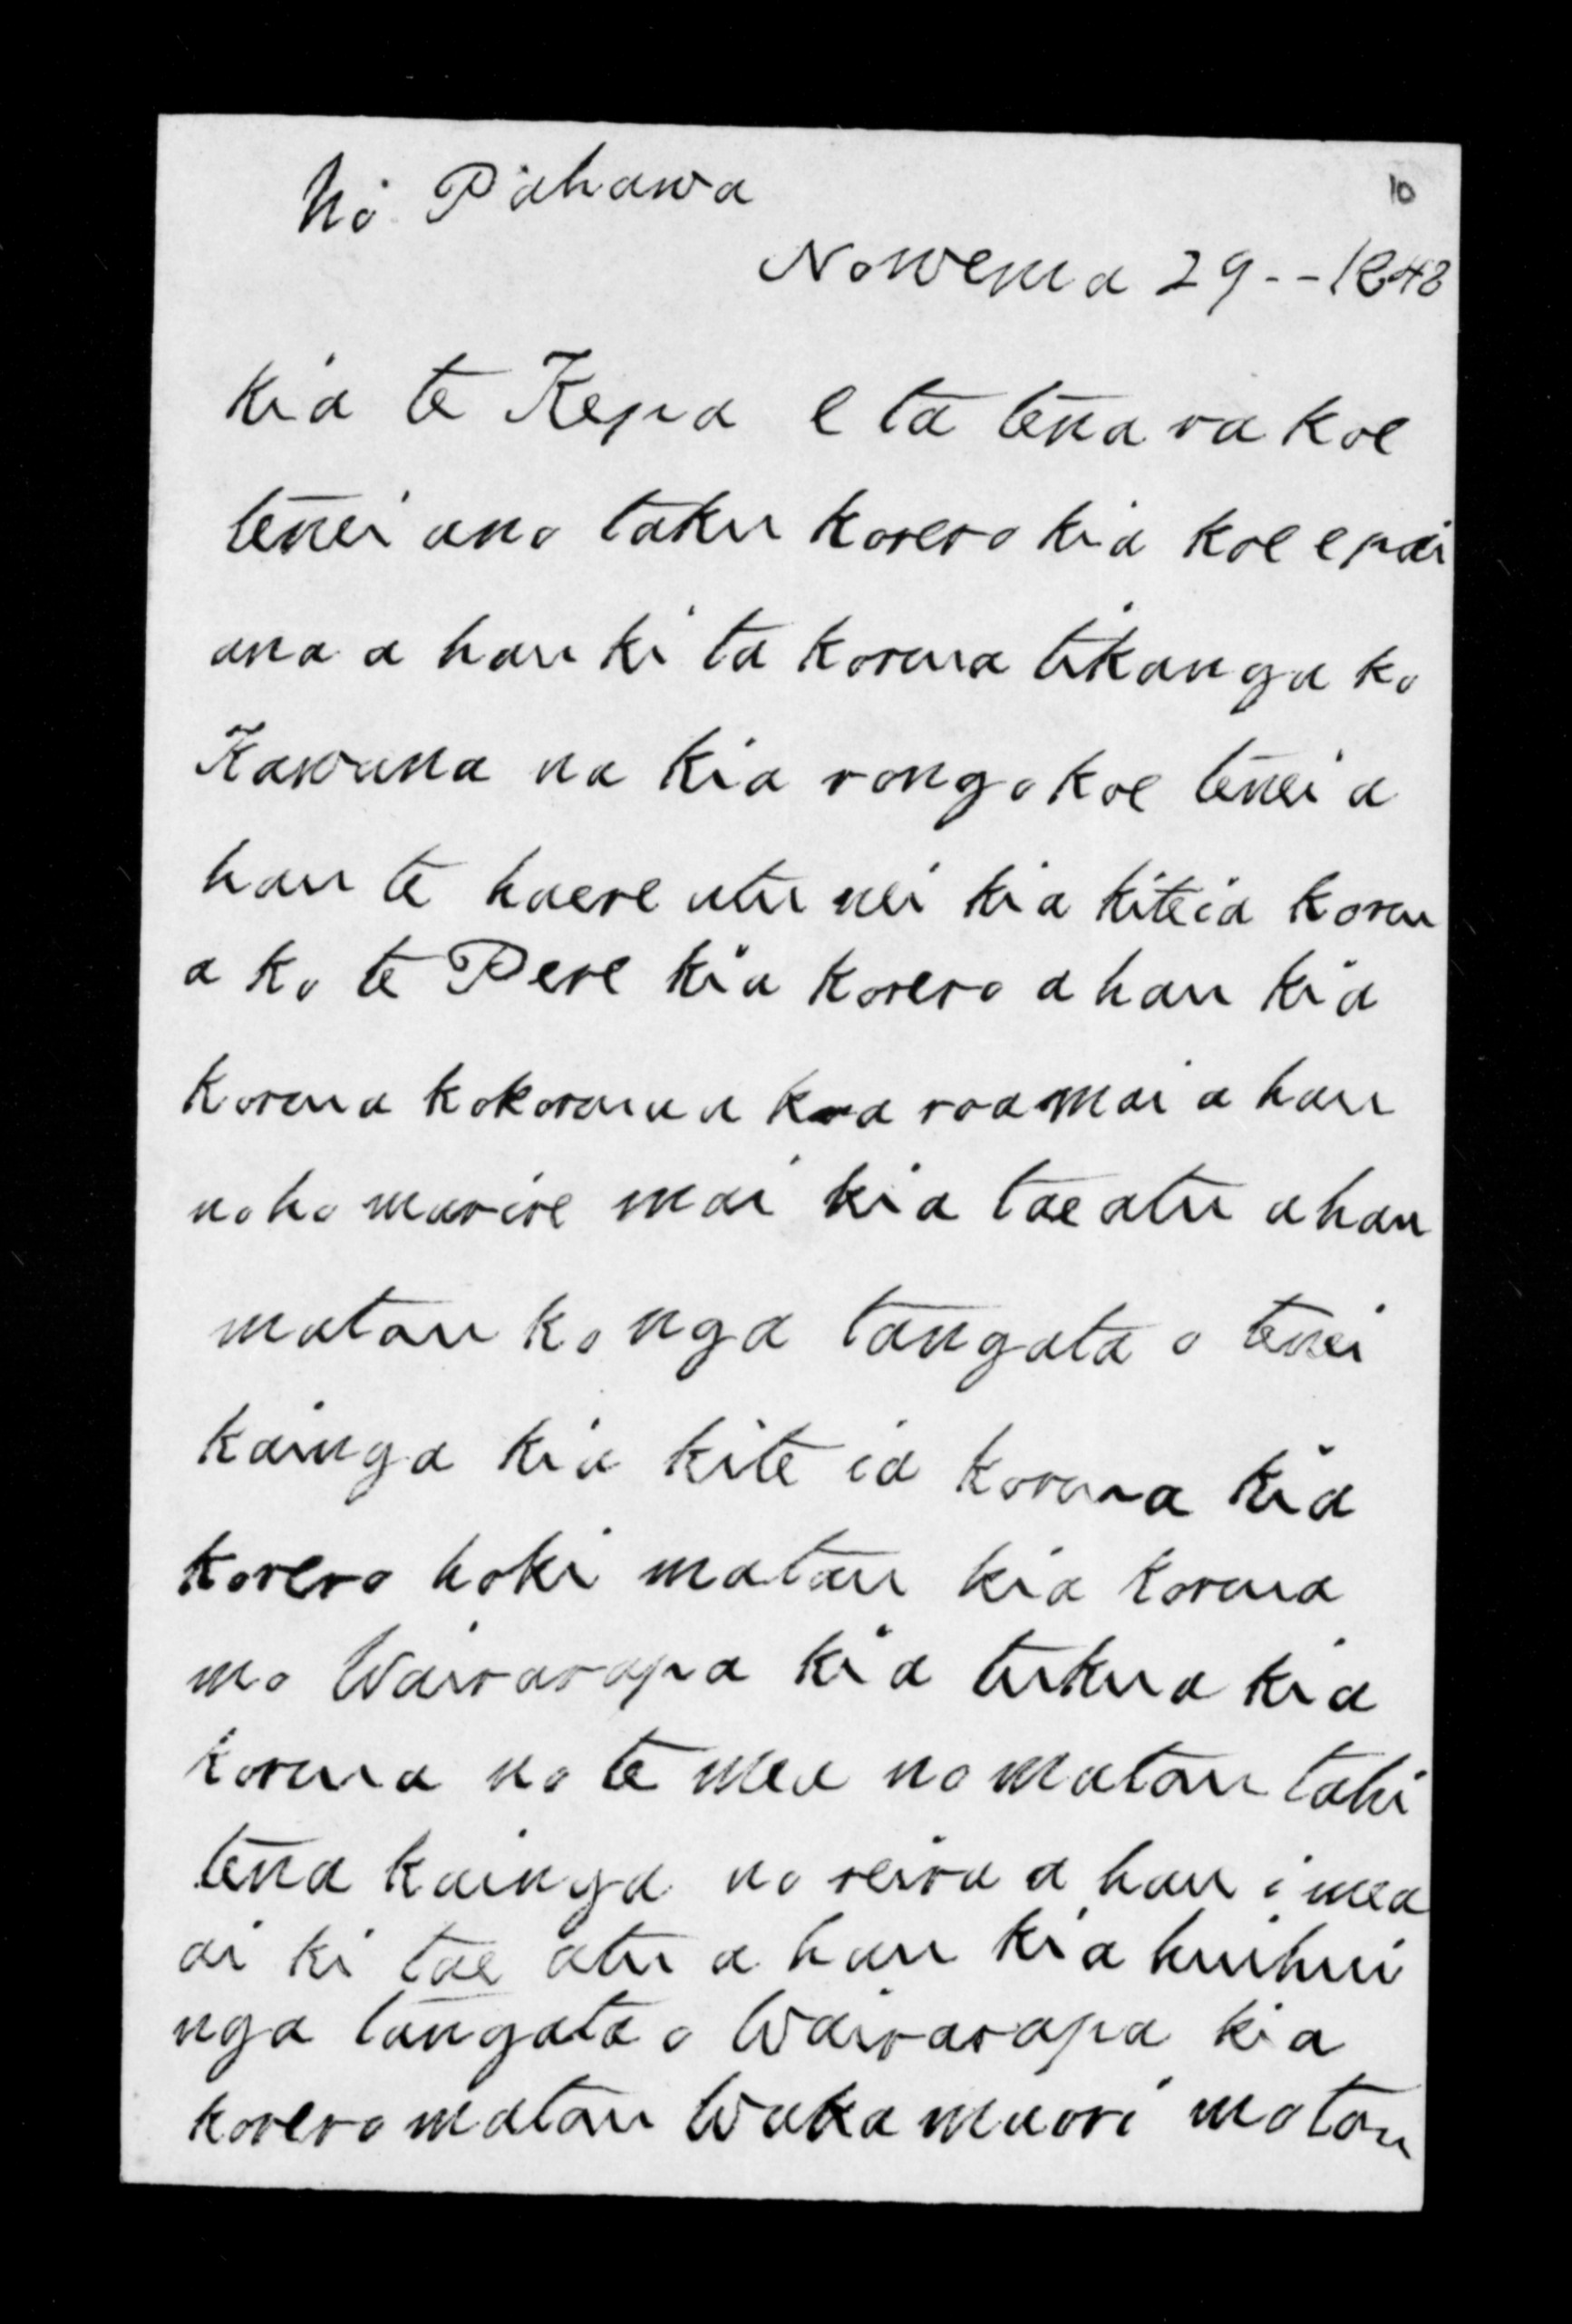 No Pahawa
10
Nowema 29 -- 1848
kia te Kepa e ta tena ra koe
tenei ano taku korero kia koe e pai
ana a hau ki ta korua tikanga ko
Kawana na kia rongo koe tenei a
hau te haere atu nei kia kite ia koru
a ko te Pere kia korero a hau kia
korua kokorua u kua roa mai a hau
noho marire mai kia tae atu a hau
matau ko nga tangata o tenei
kainga kia kite ia korua kia
korero hoki matau kia korua
mo Wairarapa kia tukua kia
korua no te mea no matau tahi
tena kainga no reira a hau i mea
ai ki tae atu a hau kia huihui
nga tangata o Wairarapa kia
korero matau Waka maori matau